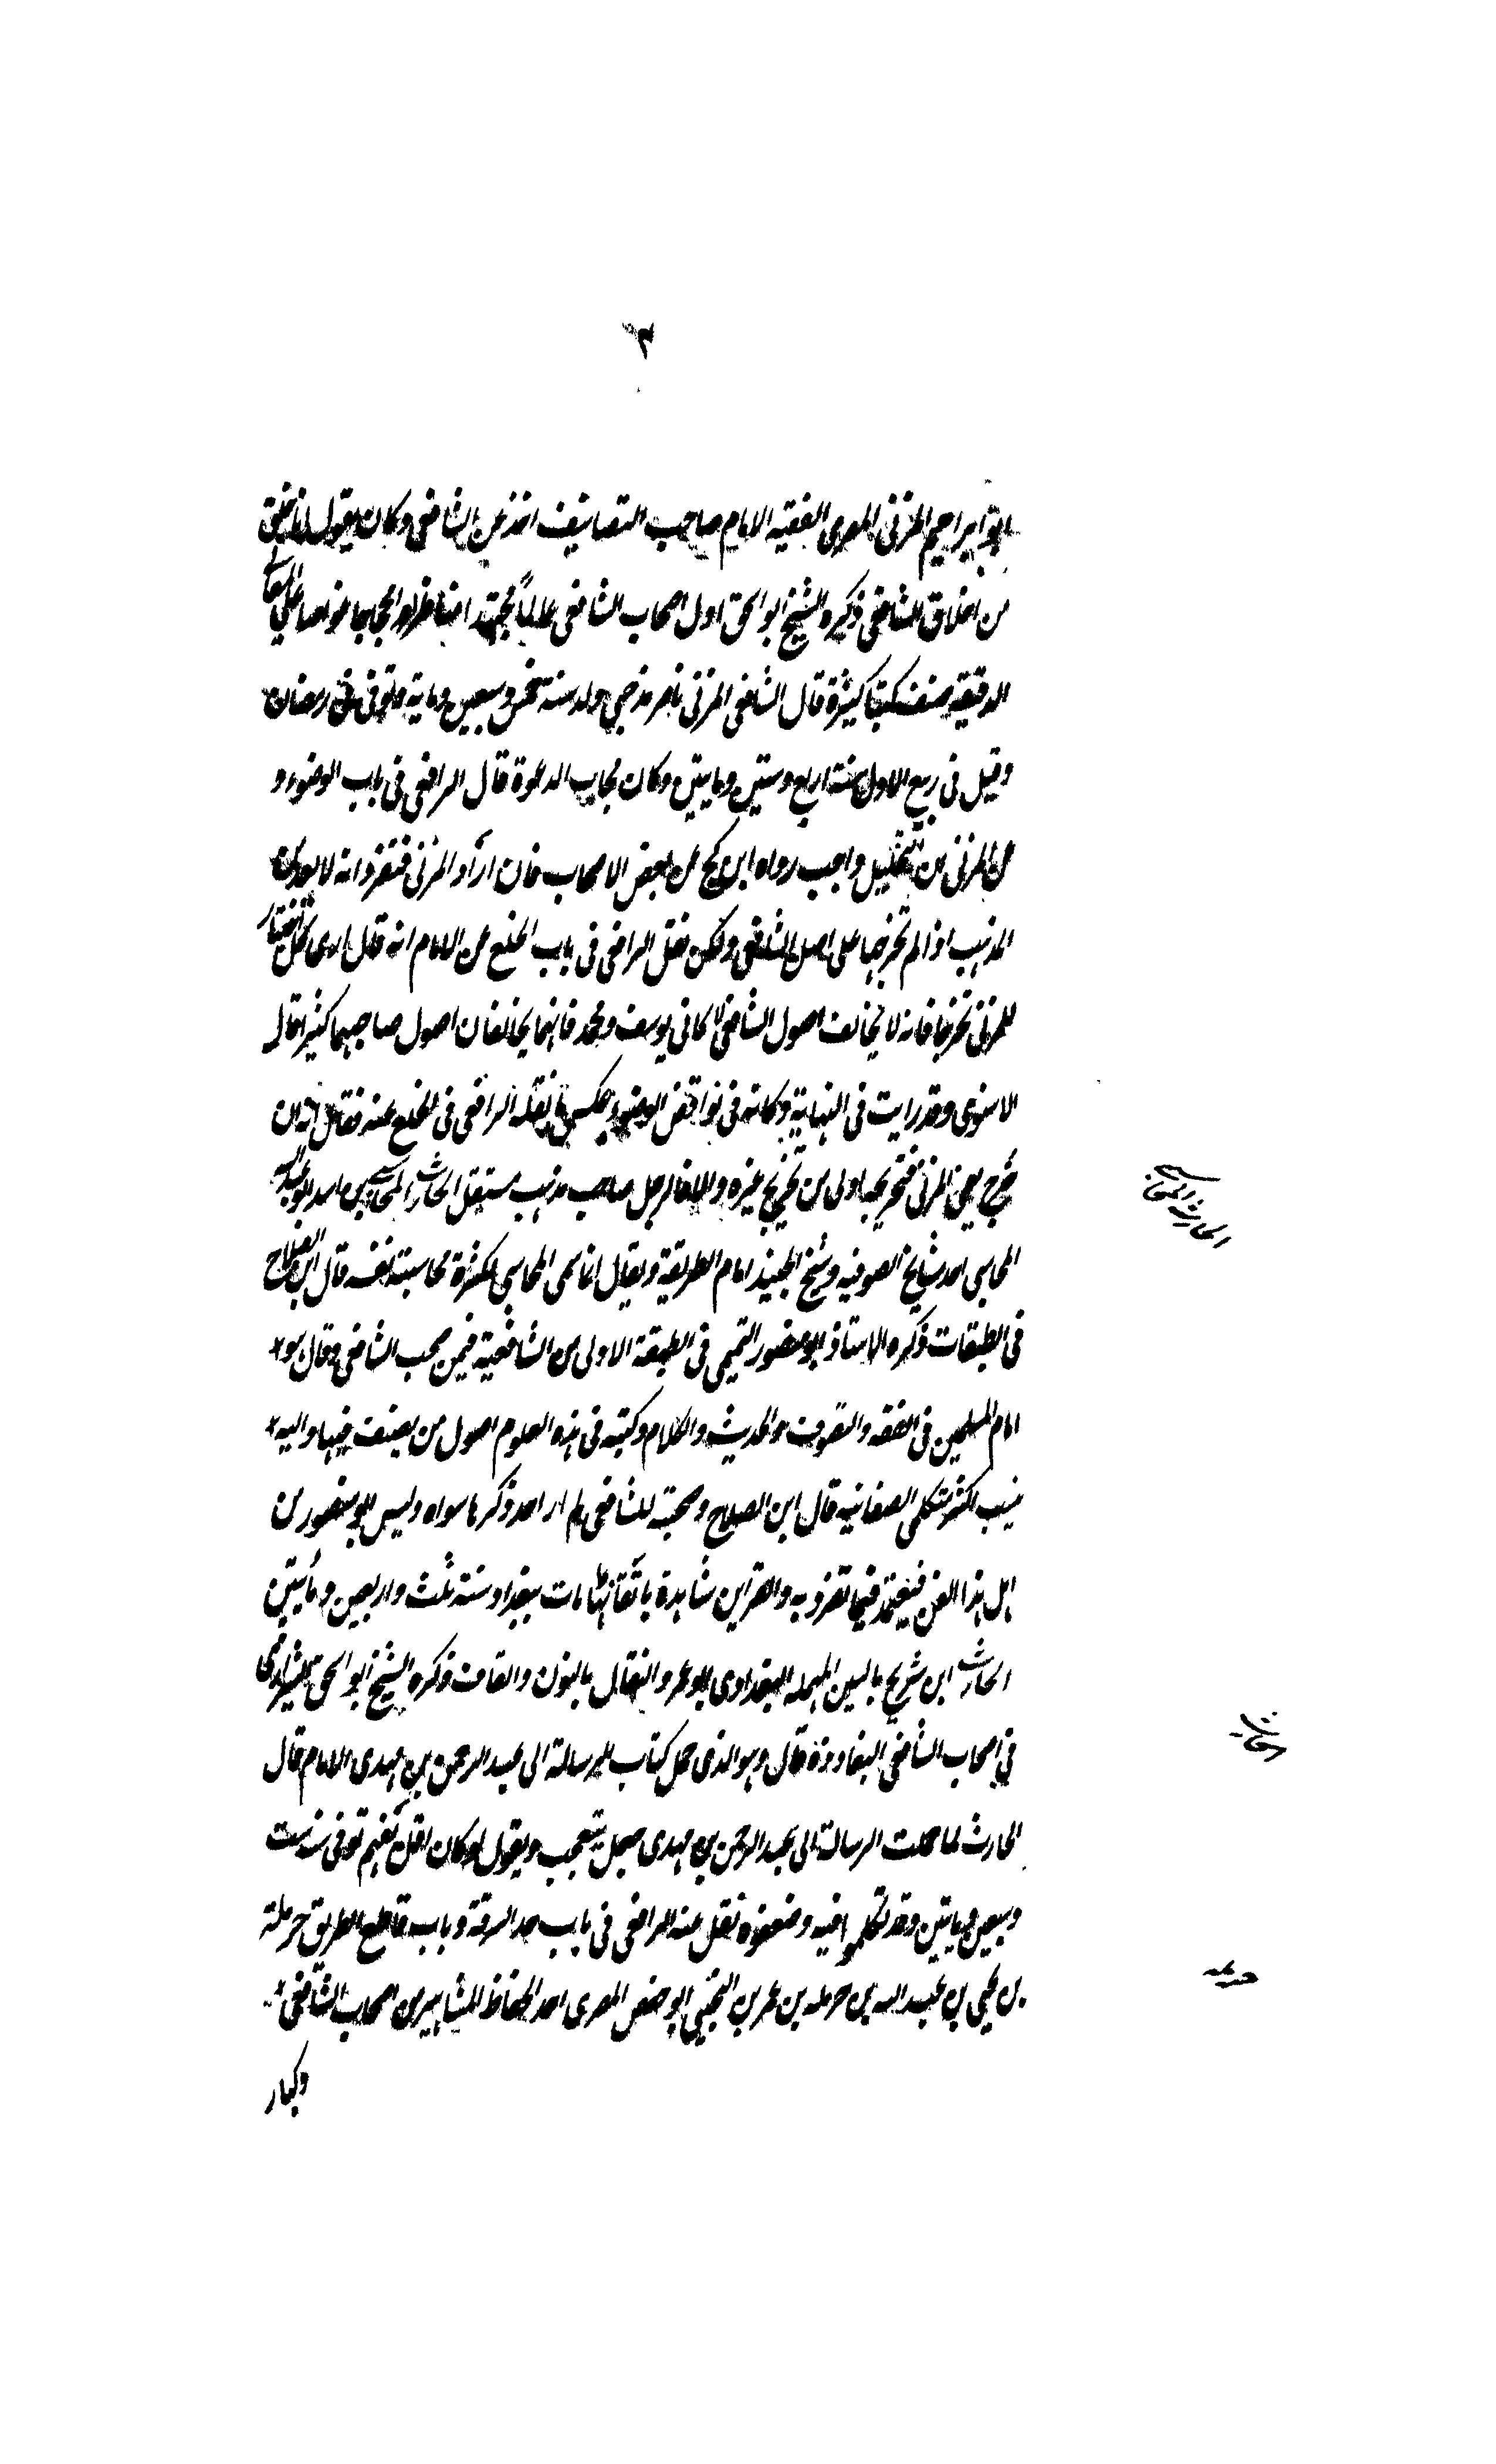 ٣
ابو ابراهيم المزنى المصرى الفقيه الامام صاحب التصانيف اخذ عن الشافعى وكان يقول انا خلق
من اخلاق الشافعى ذكره الشيخ ابو اسحق اول اصحاب الشافعى عالماً مجتهدا مناظرا محجاجا غواصا على المعانى
الدقيقة صنف كتبا كثيرة قال الشافعى المزنى ناصر مذهبى ولد سنة خمس وسبعين وماية وتوفى فى رمضان
وقيل فى ربيع الاول سنة اربع وستين ومايتين وكان مجاب الدعوة قال الرافعى فى باب الوضوء و
عن المزنى ان التخليل واجب رواه ابن كج عن بعض الاصحاب فان اراد المزنى فتفرداته لا يعد من
المذهب اذا لم تخرجها على اصل الشافعى ولكن نقل الرافعى فى باب الخلع عن الامام انه قال ارى كل اختيار
للمزنى تخريجا فانه لا يخالف اصول الشافعى لا كابى يوسف ومحمد فانهما يخالفان اصول صاحبهما كثيرا قال
الاسنوى وقد رايت فى النهاية وكانه فى نواقض الوضوء عكس ما نقله الرافعى فى الخلع عنه فقال ان
خرج يعنى المزنى فتخريجه اولى من تخريج غيره والا فالرجل صاحب مذهب مستقل الحارث المحاسبى بن اسد ابو عبدالله
المحاسبى احد مشايخ الصوفيه وشيخ الجنيد امام الطريقة ويقال انما سمى المحاسبى لكثرة محاسبته نفسه قال ابن الصلاح
فى الطبقات ذكره الاستاذ ابو منصور التميمى فى الطبقة الاولى من الشافعية فيمن صحب الشافعى وقال هو
امام المسلمين فى الفقه والتصوف والحديث والكلام وكتبه فى هذه العلوم اصول من يصنف فيها واليه
ينسب اكثر متكلمى الصفاتيه قال ابن الصلاح وصحبته للشافعى لم ار احد ذكرها سواه وليس ابو منصور من
اهل هذا الفن فيعتمد فيما تفرد به والقراين شاهدة بانتفائها مات ببغداد سنة ثلث واربعين ومأيتين
الحارث ابن شريح بالسين المهمله البغدادى ابو عمرو النقال بالنون والقاف ذكره الشيخ ابو اسحق الشيرازى
فى اصحاب الشافعى البغاددة قال وهو الذى حمل كتاب الرسالة الى عبد الرحمن بن مهدى الامام قال
الحارث لما حملت الرسالة الى عبد الرحمن بن مهدى جعل يتعجب ويقول لو كان اقل لتفهم توفى سنة ست
وسبعين ومايتين وقد تكلموا فيه وضعفوه نقل عنه الرافعى فى باب حد السرقة وباب قاطع الطريق حرملة
بن يحيى بن عبد الله بن حرمله بن عمر بن التجيبى ابو حفص المصرى احد الحفاظ المشاهير من اصحاب الشافعى
وكبار
الحارث المحاسبى
الحارث
حرمله